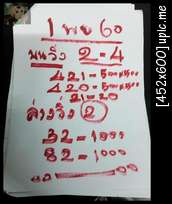 1 พย 60
บนวิ่ง 2-4
421-500x500
420-500x500
21-20
ล่างวิ่ง 2
32-1000
82-1000
[452x600] upic.me